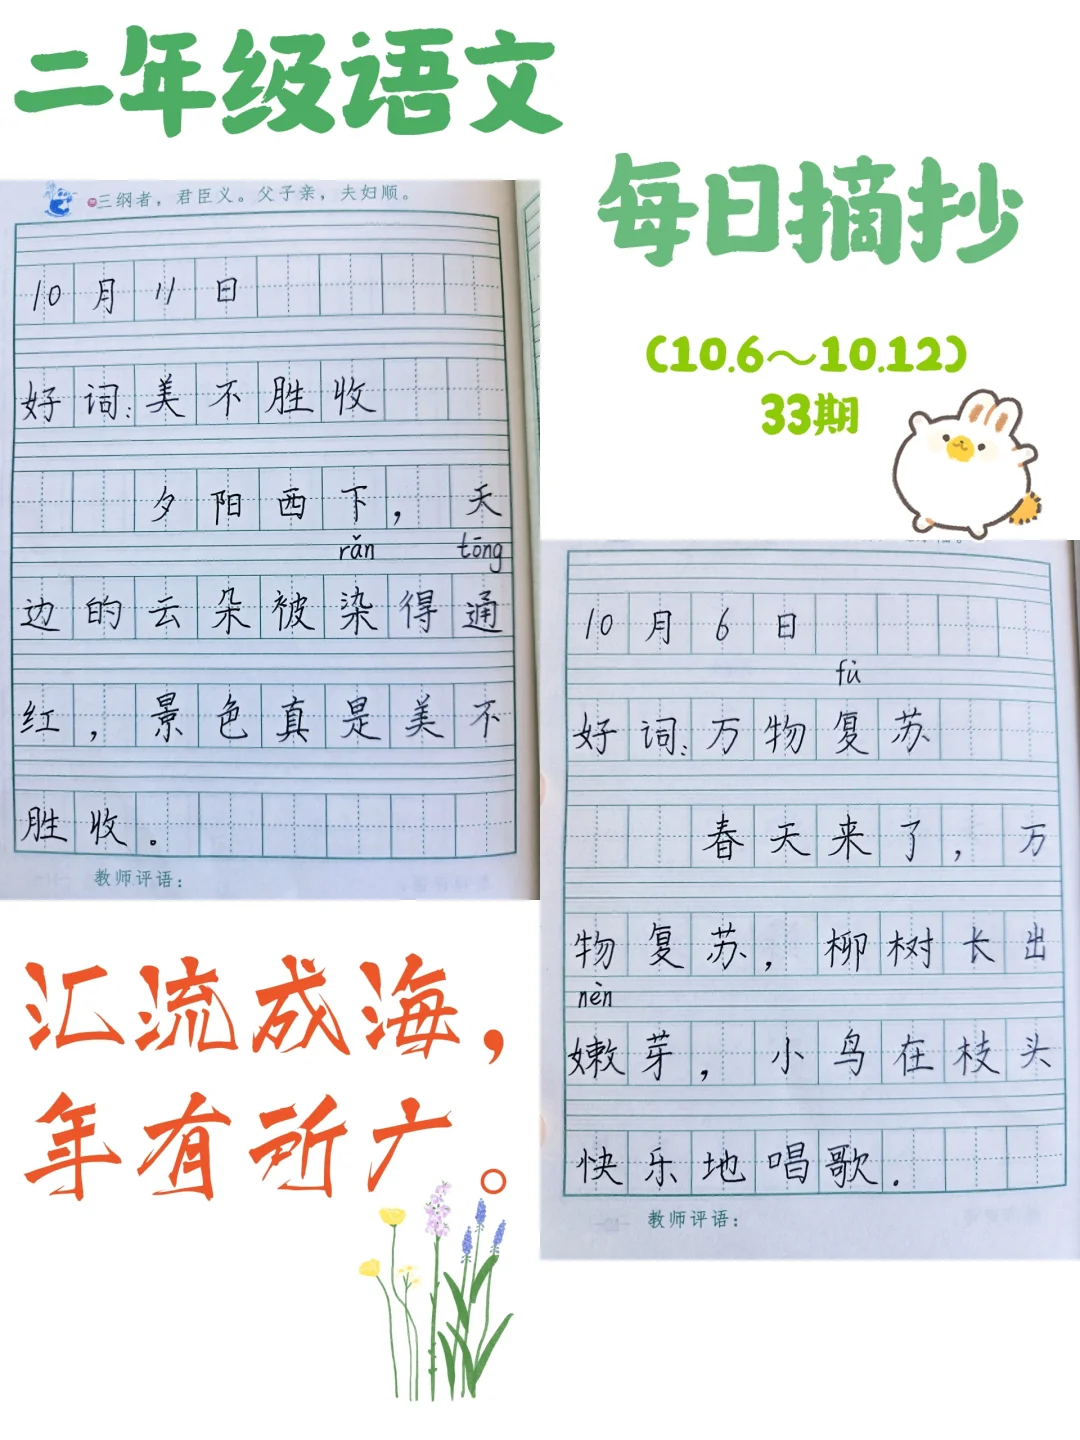 二年级语文
每日摘抄
(10.6～10.12)
33期
三纲者，君臣义。父子亲，夫妇顺。
10月11日
好词:美不胜收
夕阳西下，天
rǎn tōng
边的云朵被染得通
红，景色真是美不
胜收。
教师评语：
10月6日
fù
好词:万物复苏
春天来了，万
物复苏，柳树长出
nèn
嫩芽，小鸟在枝头
快乐地唱歌.
教师评语：
汇流成海，
年有所广。